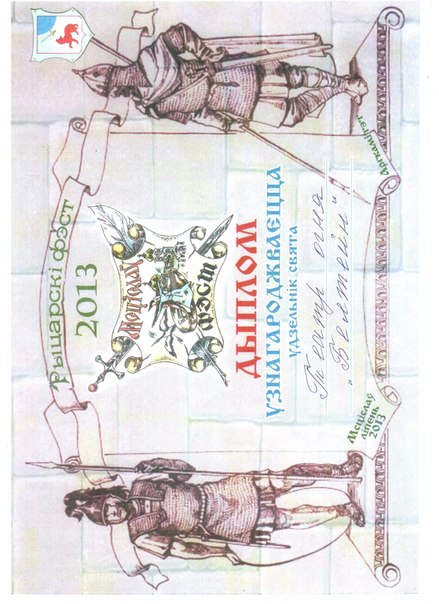 Рыцарскі фэст
2013
Мсціслаў
фэст
ДЫПЛОМ
УЗНАГАРОДЖВАЕЦЦА
УДЗЕЛЬНІК СВЯТА
Театр огня
"Белтейн"
Мсціслаў
ліпень
2013
Аргкамітэт